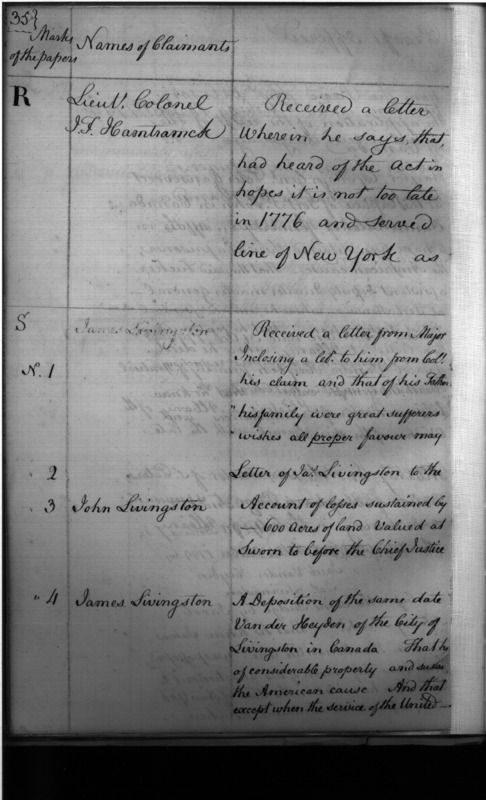 35
Marks of the papers
Names of Claimants
R
Lieut. Colonel
J. F. Hamtramck
Received a letter
Wherein he says, that,
had heard of the Act in
hopes it is not too late
in 1776 and served
line of New York as
S
James Livingston
Received a letter from Major
N. 1
Inclosing a let. to him from Col.
his claim and that of his Father
"his family were great sufferers
"wishes all proper favour may
2
Letter of Jas. Livingston to the
3
John Livingston
Account of losses sustained by
— 600 Acres of land Valued at
Sworn to before the Chief Justice
" 4
James Livingston
A Deposition of the same date
Van der Heyden of the City of
Livingston in Canada That he
of considerable property and
the American cause And that
except when the service of the United —